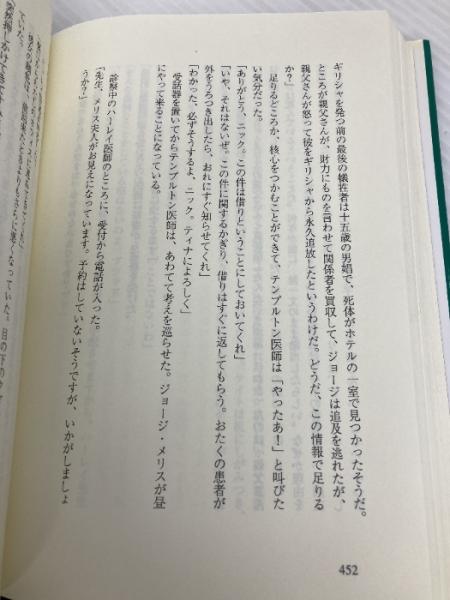 ギリシャを発つ前の最後の犠牲者は十五歳の男娼で、死体がホテルの一室で見つかったそうだ。
ところが親父さんが、財力にものを言わせて関係者を買収して、ジョージは追及を逃れたが、
親父さんが怒って彼をギリシャから永久追放したというわけだ。どうだ、この情報で足りる
か?」
足りるどころか、核心をつかむことができて、テンプルトン医師は「やったあ!」と叫びた
い気分だった。
「ありがとう、ニック。この件は借りということにしておいてくれ」
「いや、それはないぜ。この件に関するかぎり、借りはすぐに返してもらう。おたくの患者が
外をうろつき出したら、おれにすぐ知らせてくれ」
「わかった、必ずそうするよ、ニック。ティナによろしく」
受話器を置いてからテンプルトン医師は、あわてて考えを巡らせた。ジョージ・メリスが昼
にやって来ることになっている。
診察中のハーレイ医師のところに、受付から電話が入った。
「先生、メリス夫人がお見えになっています。予約はしていないそうですが、いかがしましょ
うか?」
452